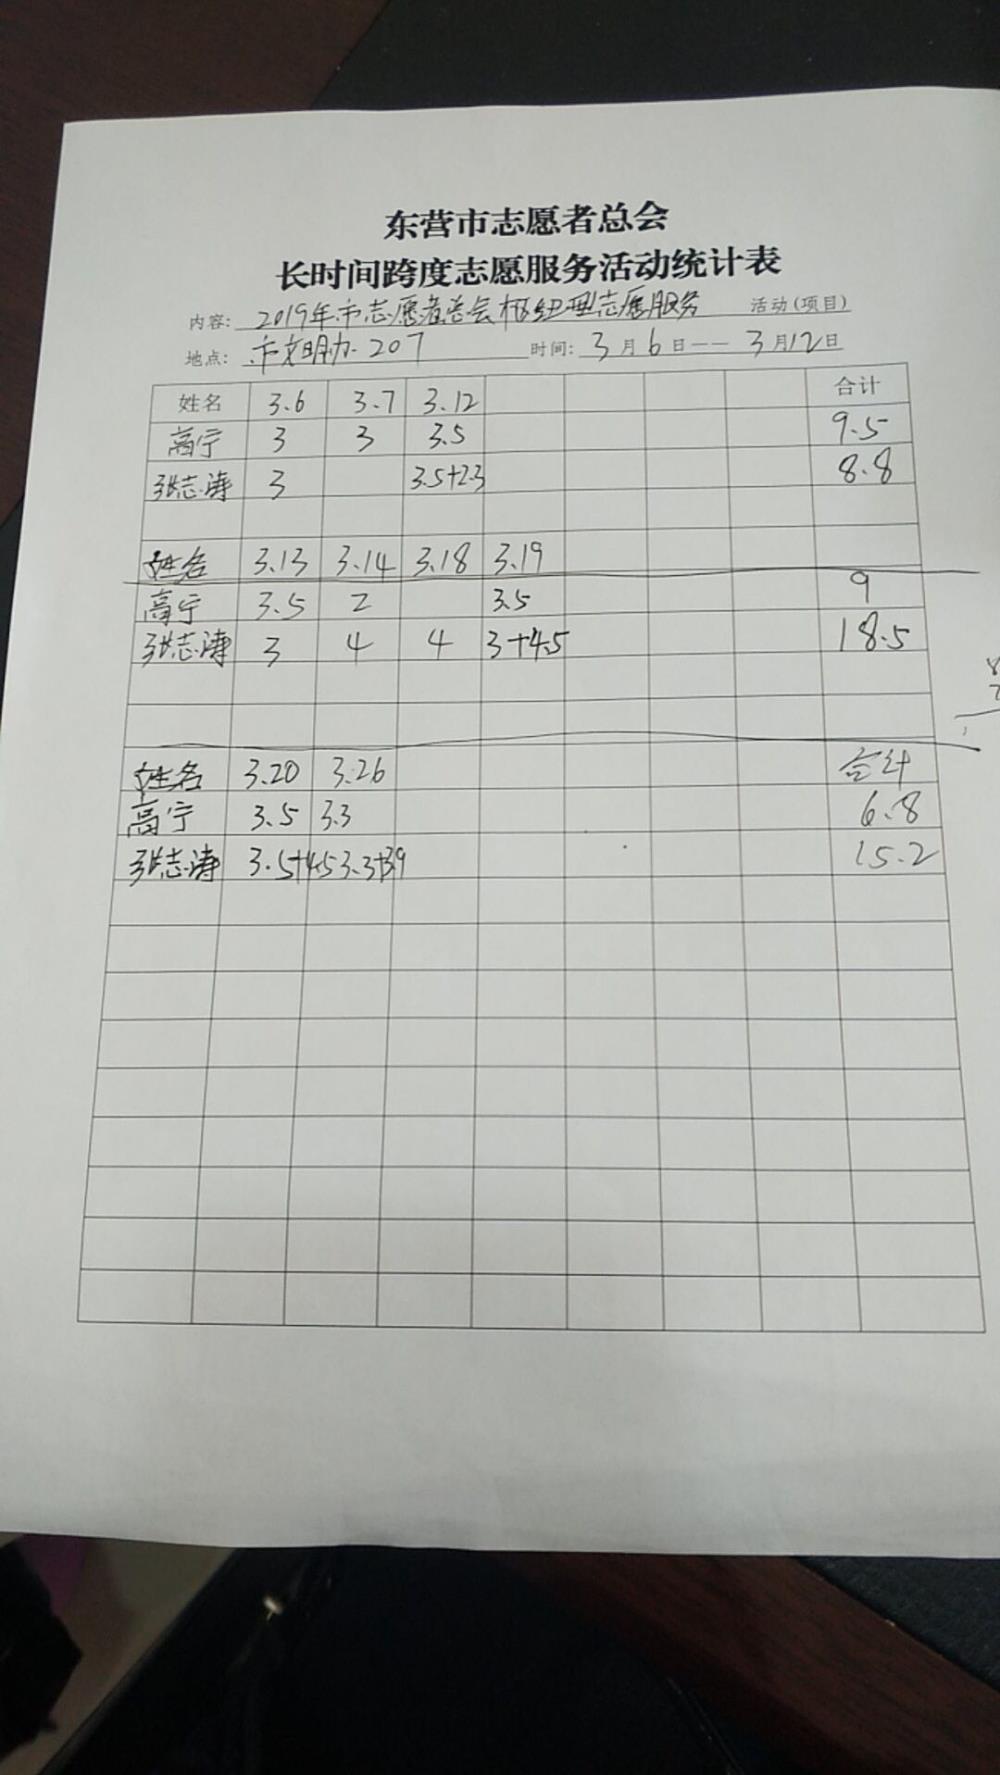 东营市志愿者总会
长时间跨度志愿服务活动统计表
内容: 2019年市志愿者总会枢纽型志愿服务 活动(项目)
地点: 市文明办207 时间: 3月6日——3月12日
姓名 3.6 3.7 3.12 合计
高宁 3 3 3.5 9.5
张志涛 3 3.5+2.3 8.8
姓名 3.13 3.14 3.18 3.19
高宁 3.5 2 3.5 9
张志涛 3 4 4 3+4.5 18.5
姓名 3.20 3.26 合计
高宁 3.5 3.3 6.8
张志涛 3.5+4.5 3.3+3.9 15.2